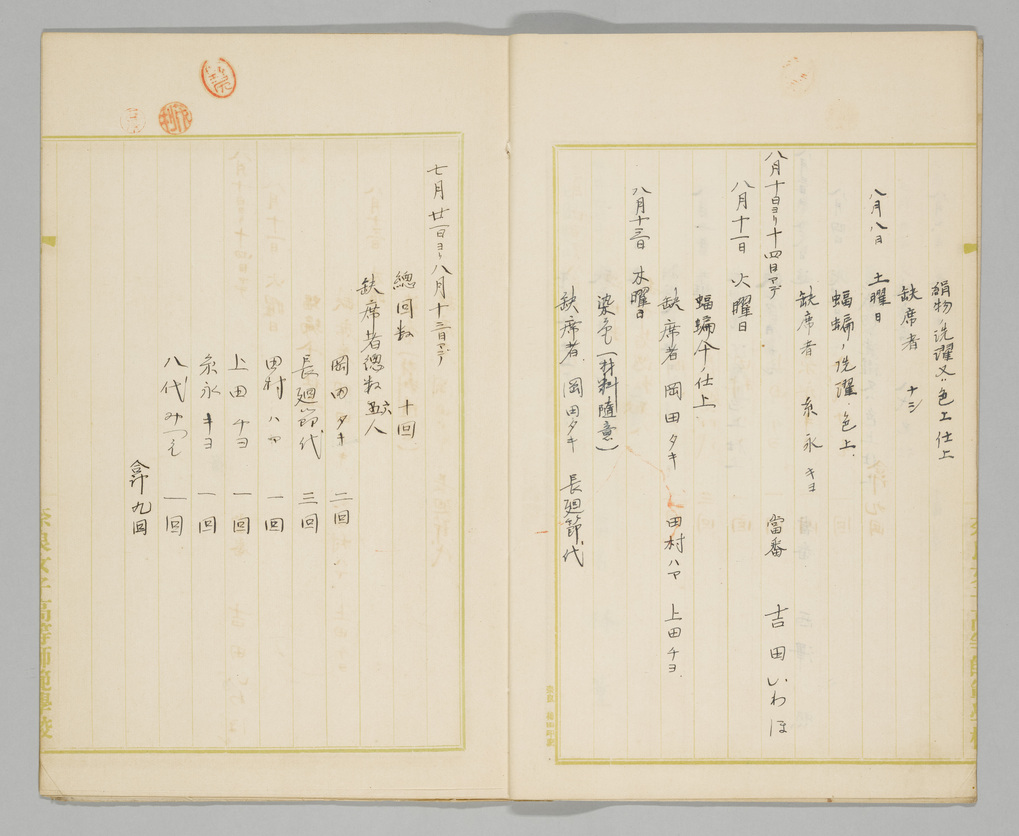 絹物ノ洗濯又ハ色上仕上
缺席者 ナシ
八月八日 土曜日
蝙蝠ノ洗濯、色上、
缺席者 糸永キヨ
八月十日ヨリ十四日マデ 當番 吉田いわほ
八月十一日 火曜日
蝙蝠傘ノ仕上
缺席者 岡田タキ 田村ハマ 上田チヨ
八月十三日 木曜日
染色(材料隨意)
缺席者 岡田タキ 長廻節代
七月廿一日ヨリ八月十三日マデ
總回数 十回
缺席者總数 六人
岡田タキ 二回
長廻節代 三回
田村ハマ 一回
上田チヨ 一回
糸永キヨ 一回
八代みつえ 一回
合計九回
奈良女子高等師範學校